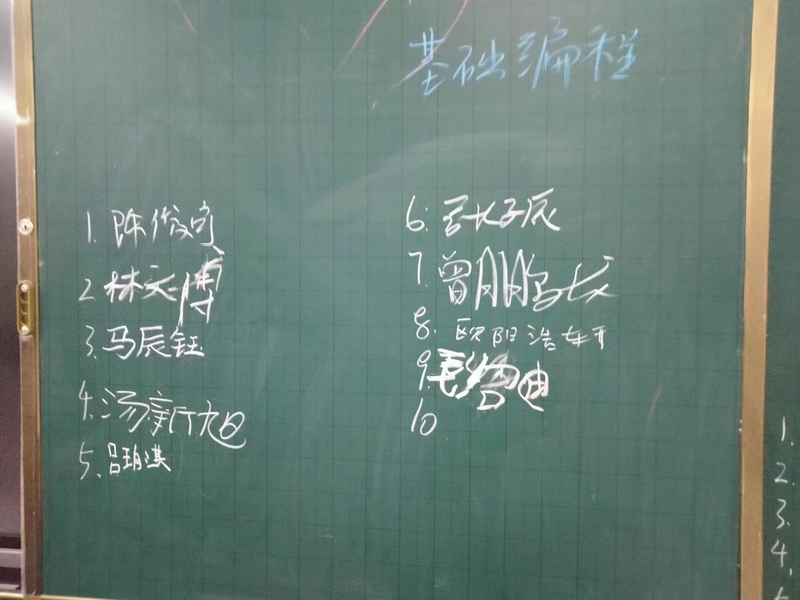 基础编程
1. 陈俊宾
2. 林天博
3. 马辰钰
4. 汤新旭
5. 吕玥淇
6. 子辰
7. 曾鹏飞
8. 欧阳浩轩
9. 迪
10
1.
2.
3.
4.